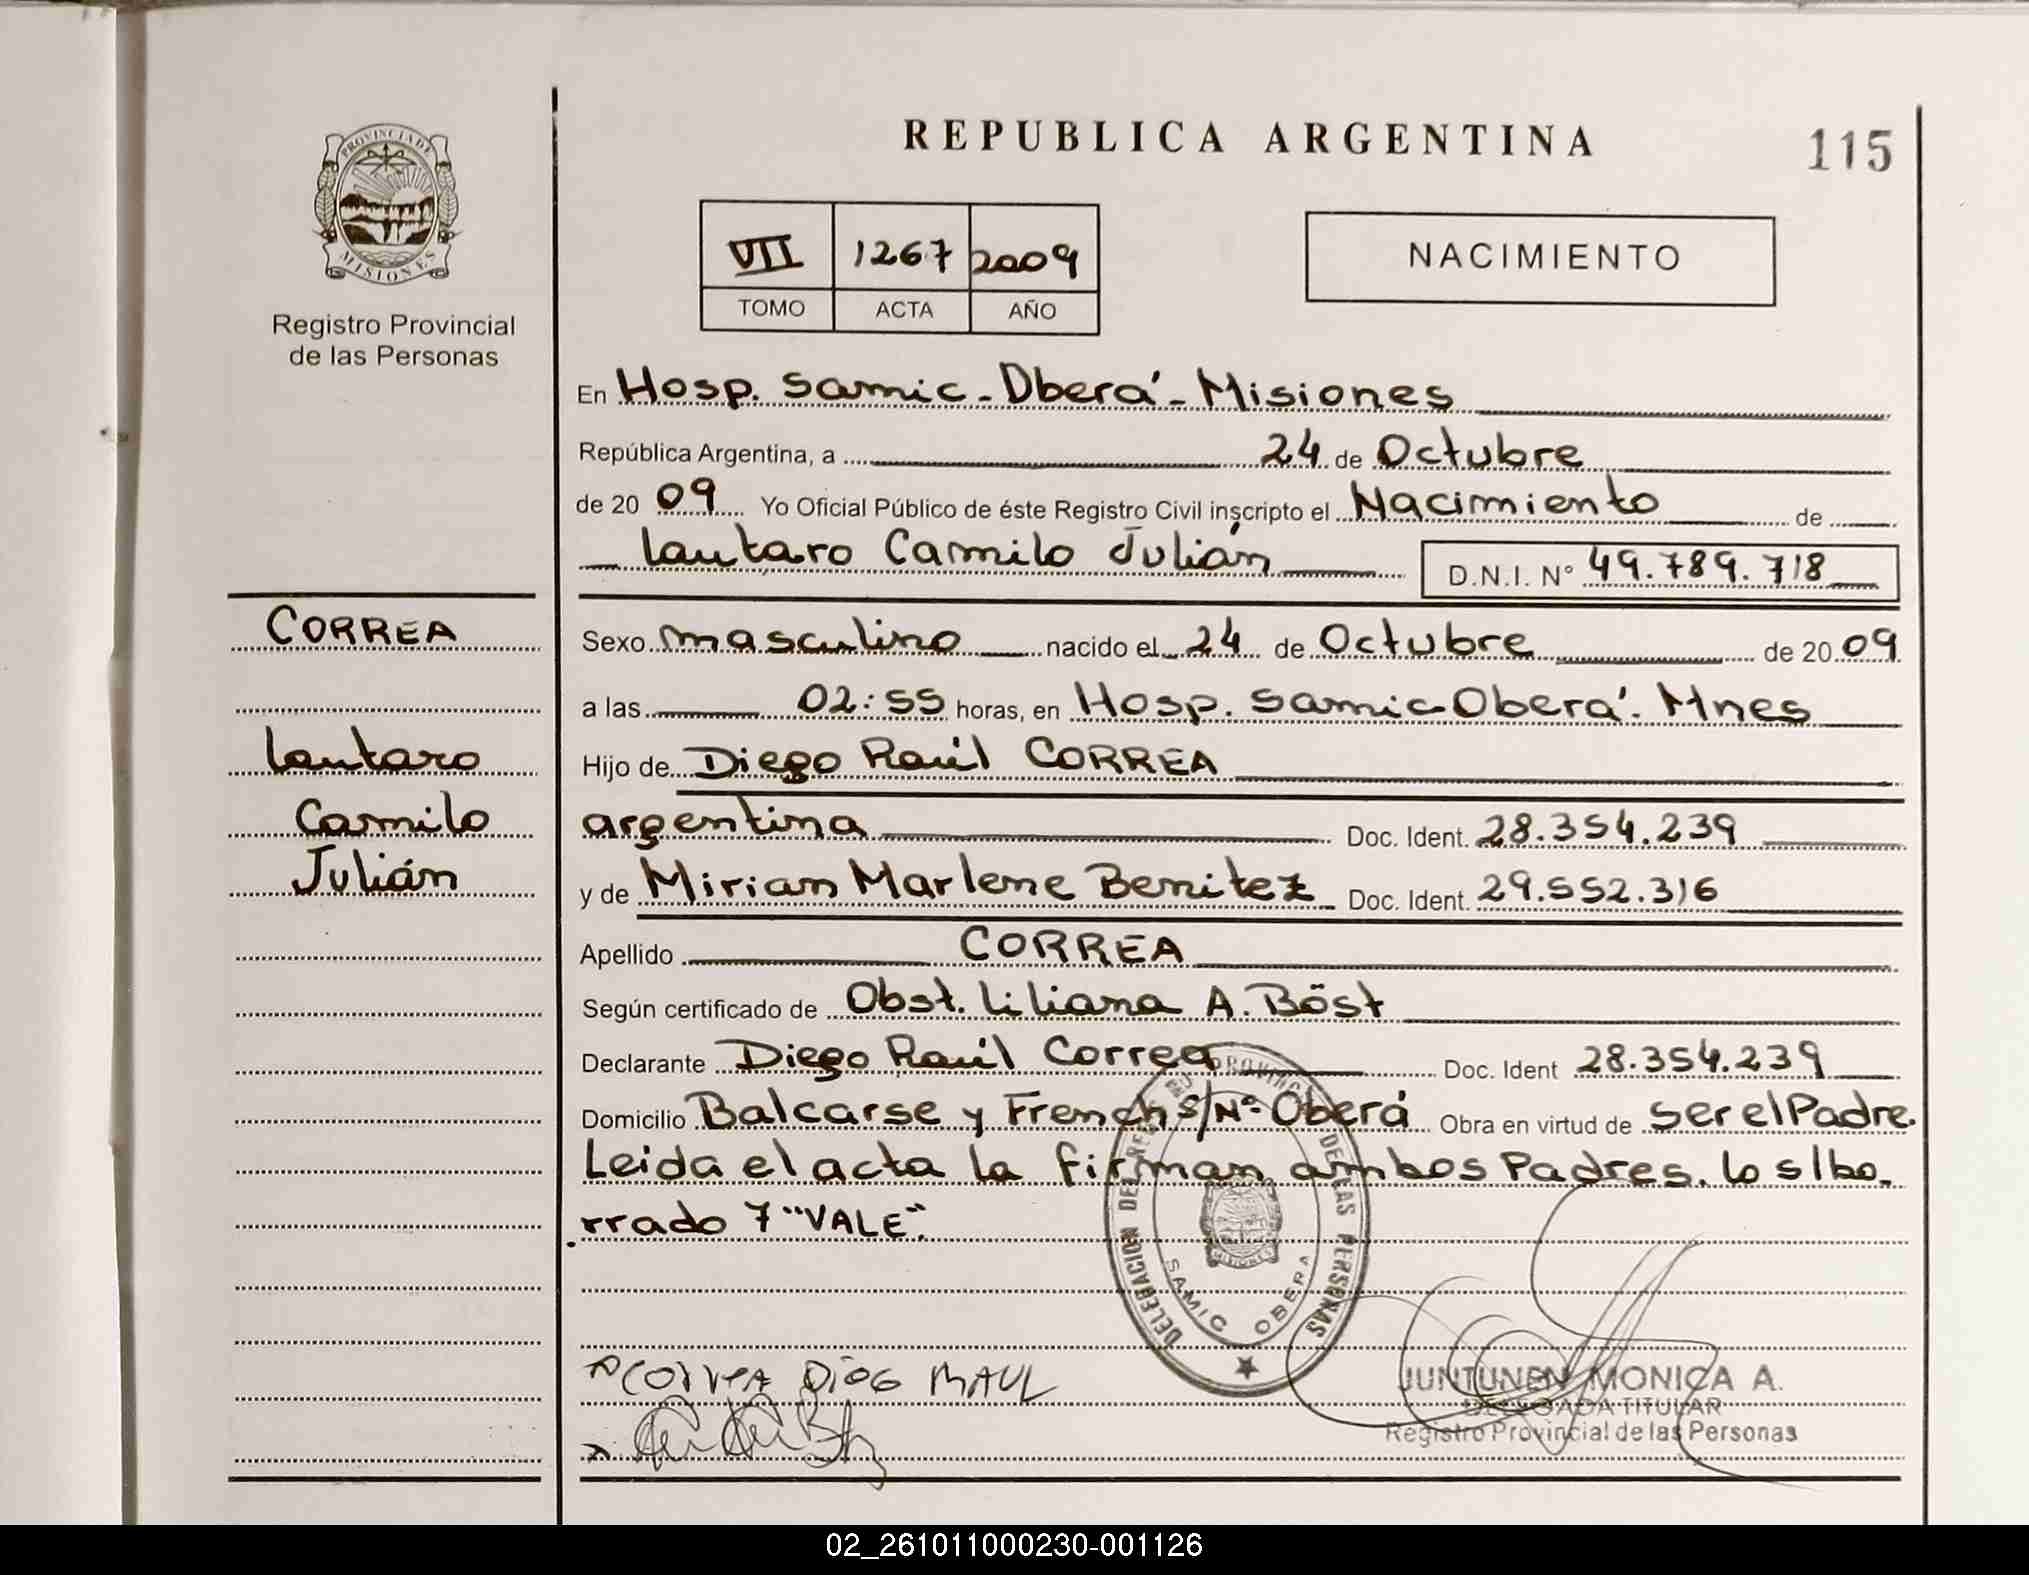 REPUBLICA ARGENTINA
115
PROVINCIA DE
MISIONES
Registro Provincial
de las Personas
VII 1267 2009
TOMO ACTA AÑO
NACIMIENTO
En Hosp. Samic - Oberá - Misiones
República Argentina, a 24 de Octubre
de 20 09 Yo Oficial Público de éste Registro Civil inscripto el Nacimiento de
Lautaro Camilo Julián D.N.I. N° 49.789.718
CORREA
Lautaro
Camilo
Julián
Sexo masculino nacido el 24 de Octubre de 20 09
a las 02:55 horas, en Hosp. Samic-Oberá. Mnes
Hijo de Diego Raúl CORREA
argentina Doc. Ident. 28.354.239
y de Miriam Marlene Benitez Doc. Ident. 29.552.316
Apellido CORREA
Según certificado de Obst. Liliana A. Böst
Declarante Diego Raúl Correa Doc. Ident 28.354.239
Domicilio Balcarse y French s/Nº Oberá Obra en virtud de Ser el Padre.
Leida el acta la firman ambos Padres. lo s/bo-
rrado 7 "VALE".
DELEGACION DEL REG. PROVINCIAL DE LAS PERSONAS
SAMIC OBERA
CORREA DIEGO RAUL
JUNTUNEN MONICA A.
DELEGADA TITULAR
Registro Provincial de las Personas
02_261011000230-001126